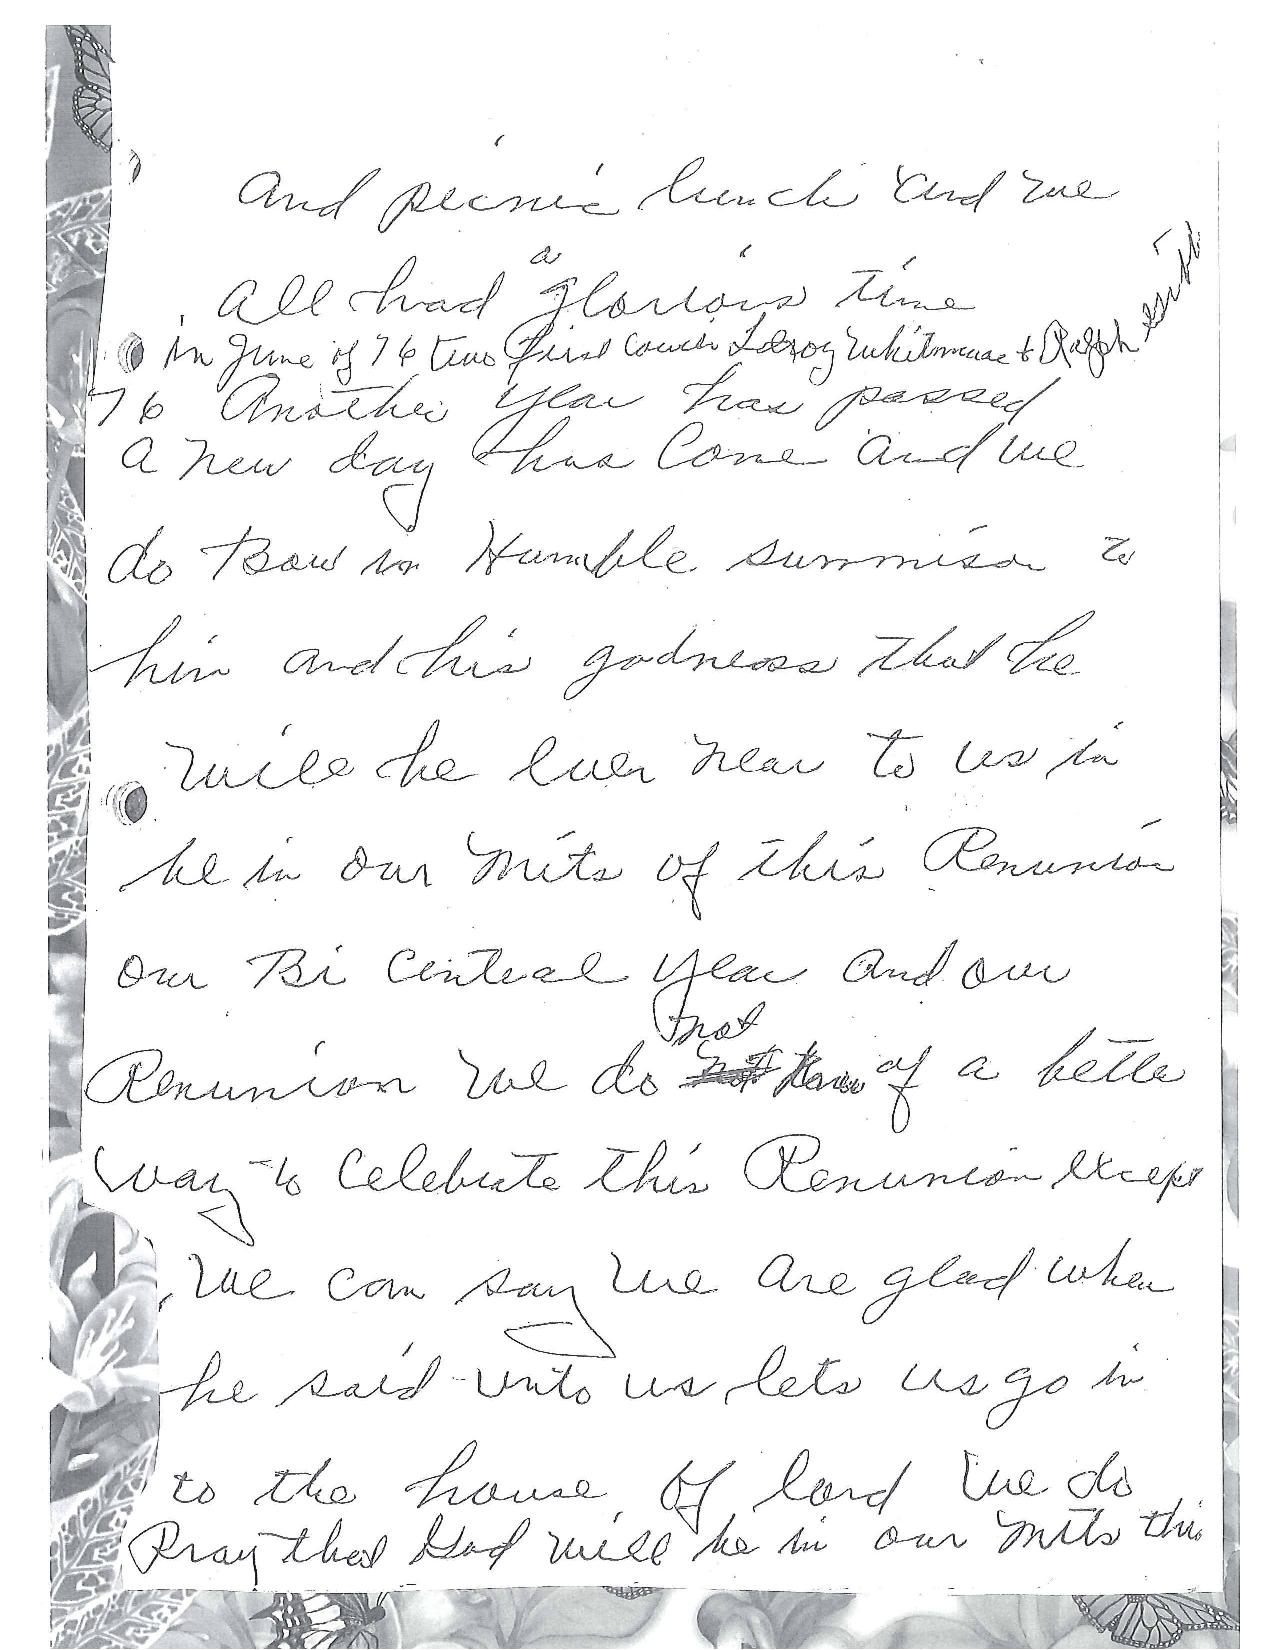 And picnic lunch and we
a
all had glorious time
in June of 76 two first cousin Leroy Whitmire & Ralph
76 Another year has passed
a new day has come and we
do Bow in Humble summison to
him and his godness that he
will be ever near to us in
be in our mits of this Renunion
our Bi centeal year and our
not
Renunion we do not know of a better
way to celebrate this Renunion except
we can say we are glad when
he said unto us lets us go in
to the house of lord we do
Pray that God will be in our mits this